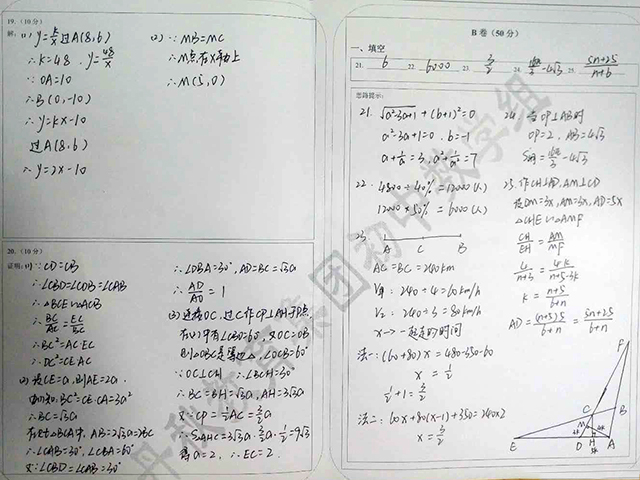 19.(10分)
解: (1) y=k/x 过A(8,6)
∴k=48 . y=48/x
∵ OA=10
∴B(0,-10)
∴y=kx-10
过A(8,6)
∴y=2x-10
(2) ∵ MB=MC
∴M点在x轴上
∴M(5,0)
20.(10分)
证明: (1) ∵CD=CB
∴∠CBD=∠CDB=∠CAB
∴△BCE∽△ACB
∴BC/AC=EC/BC
∴BC²=AC·EC
∴DC²=CE·AC
(2) 设CE=a, 则AE=2a.
BC²=CE·CA=3a²
∴BC=√3a
AB=2√3a=2BC
∴∠CAB=30°, ∠CBA=60°
又∵∠CBD=∠CAB=30°
∴∠DBA=30°, AD=BC=√3a
∴AD/AO=1
(3) 连接OC, 过C作CP⊥AH于点P.
∠CBO=60°, 又OC=OB
∠OCB=60°
∵OC⊥CH ∴∠BCH=30°
∴BC=BH=√3a, AH=3√3a
又∵CP=1/2AC=3/2a
∴S△AHC=3√3a·3/2a·1/2=9√3
得a=2, ∴EC=2.
B卷(50分)
一、填空
21. 6 22. 6000 23. 3/2 24. 4π/3-4√3 25. 5n+25/n+6
思路提示:
21. √a²-3a+1+(b+1)²=0
a²-3a+1=0 . b=-1
a+1/a=3, a²+1/a²=7
22. 4800÷40%=12000(人)
12000×50%=6000(人)
23.
A C B
AC=BC=240km
V甲: 240÷4=60km/h
V乙: 240÷3=80km/h
x→一起走的时间
法一: (60+80)x=480-350-60
x=1/2
1/2+1=3/2
法二: 60x+80(x-1)+350=240×2
x=3/2
24. 当OP⊥AB时
OP=2, AB=4√3
25. 作CH⊥AD, AM⊥CD
设DM=3x, AM=4x, AD=5x
△CHE∽△AMF
CH/EH=AM/MF
4/n+3=4k/n+5-3k
k=n+5/6+n
AD=(n+5)5/6+n=5n+25/6+n
F
C
B
M
E
D
H
A